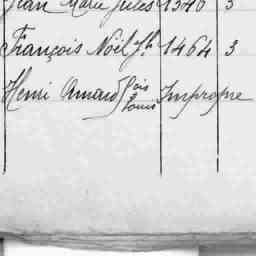 Jean Marie Jules 1340 3
François Noël Jh 1464 3
Henri Amand fois Louis Impropre